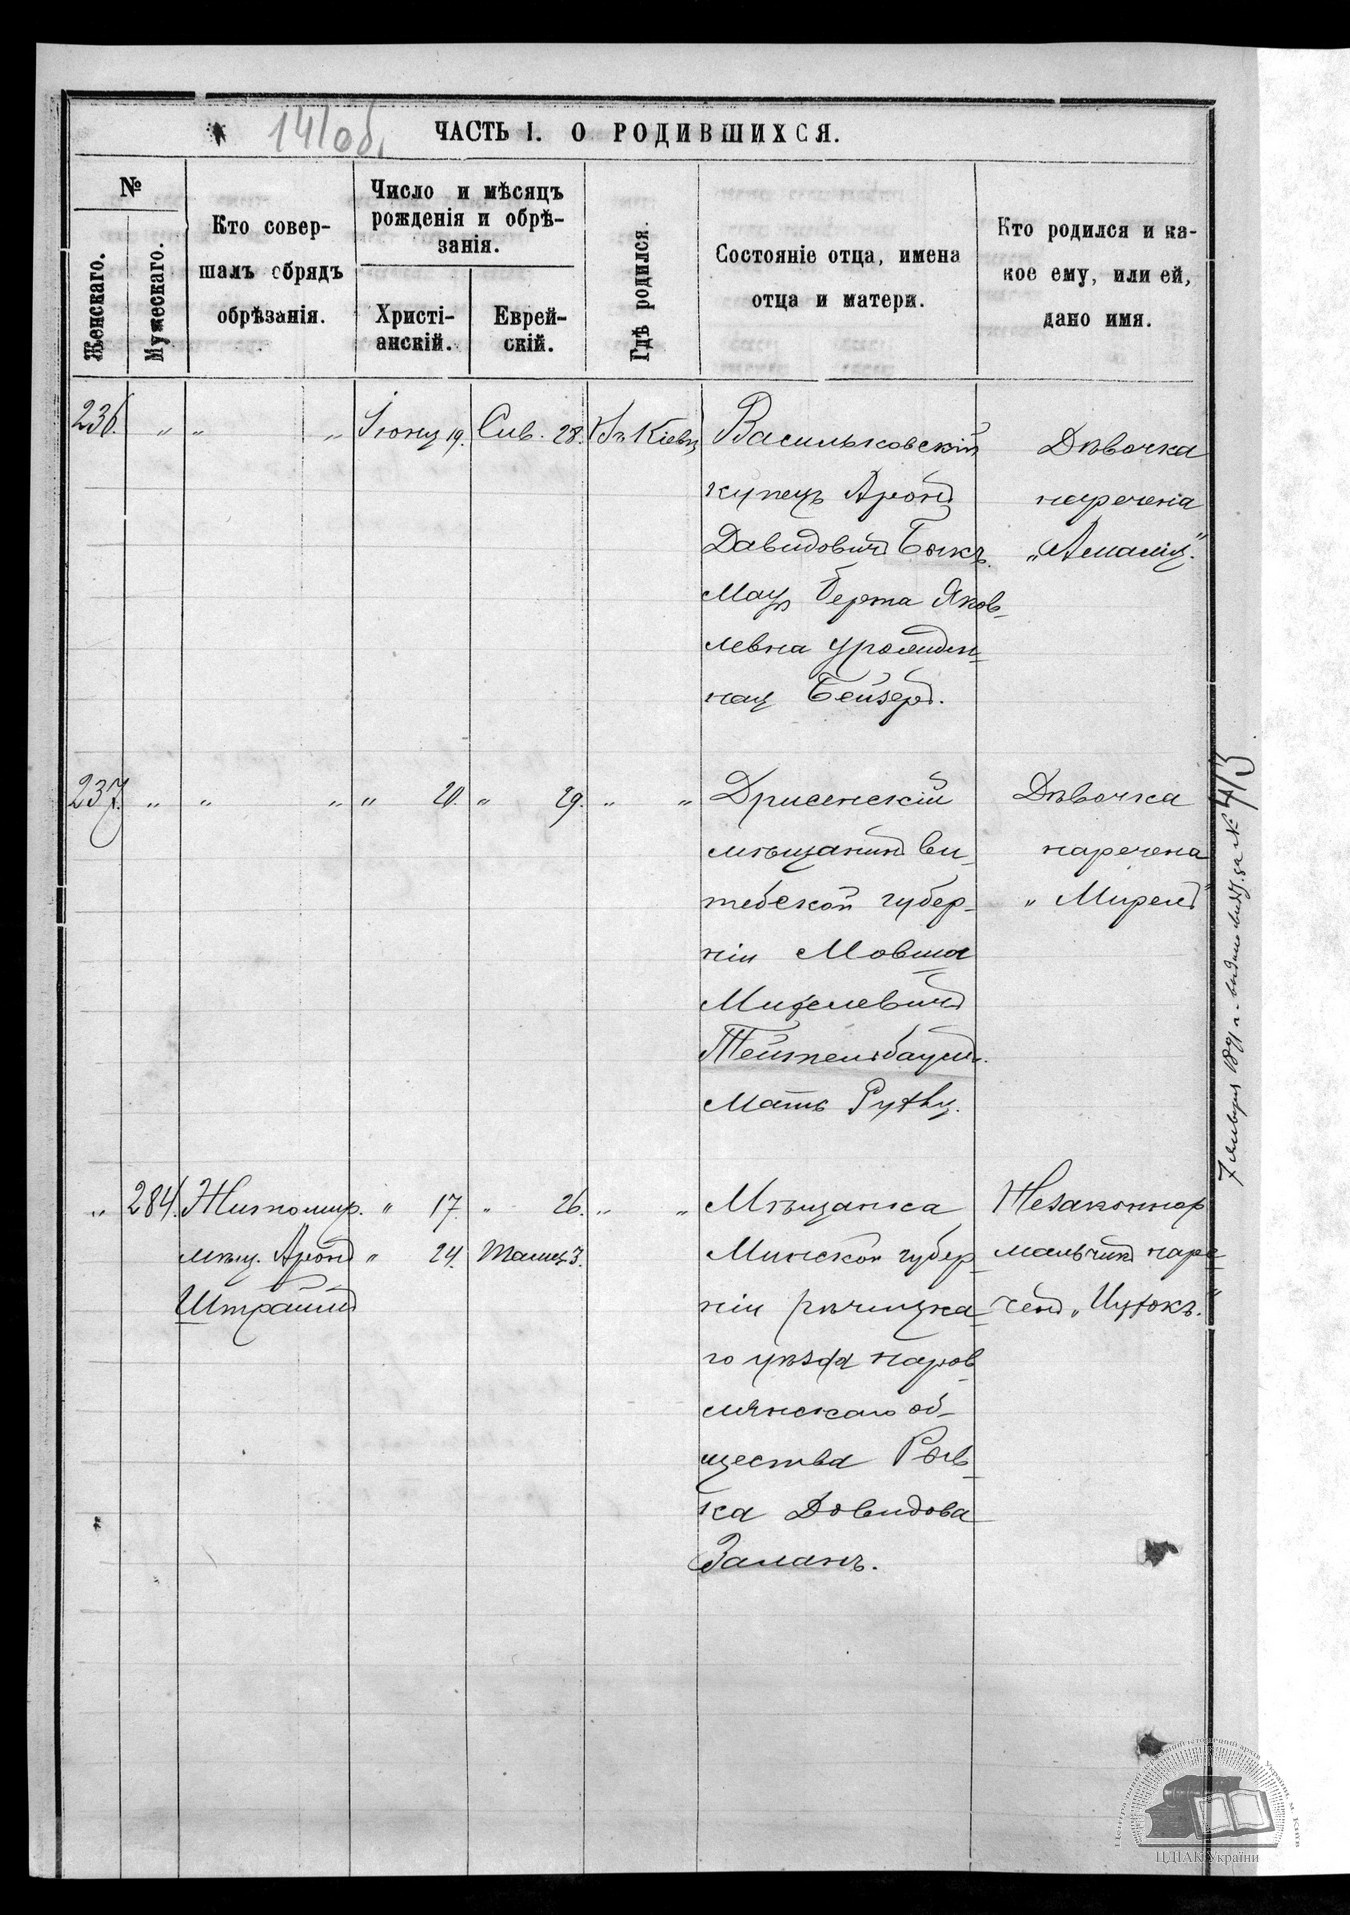 141 об.
ЧАСТЬ I. О РОДИВШИХСЯ.
№
Женскаго.
Мужескаго.
Кто совер-
шалъ обрядъ
обрѣзанія.
Число и мѣсяцъ
рожденія и обрѣ-
занія.
Христі-
анскій.
Еврей-
скій.
Гдѣ родился.
Состояніе отца, имена
отца и матери.
Кто родился и ка-
кое ему, или ей,
дано имя.
236. „ „ „ Іюня 19. Сив. 28. Въ Кіевѣ
Васильковскій
купецъ Аронъ
Давидовичъ Быкъ.
Мать Берта Яков-
левна урожден-
ная Бейзеръ.
Дѣвочка
наречена
„Амалія“.
237. „ „ „ „ 20. „ 29. „ „
Дриссенскій
мѣщанинъ Ви-
тебской губер-
ніи Мовша
Михелевичъ
Тейтельбаумъ.
Мать Рухля.
Дѣвочка
наречена
„Мирель“
„ 284. Житомир. „ 17. „ 26. „ „
мѣщ. Аронъ „ 24. Тамуз 3.
Штрайтъ
Мѣщанка
Минской губер-
ніи рѣчицка-
го уѣзда наров-
лянскаго об-
щества Рыв-
ка Довидова
Заманъ.
Незаконнор
мальчикъ наре-
ченъ „Ицхокъ.“
7 Января 1891 г. выдано за № 413
ЦДІАК України